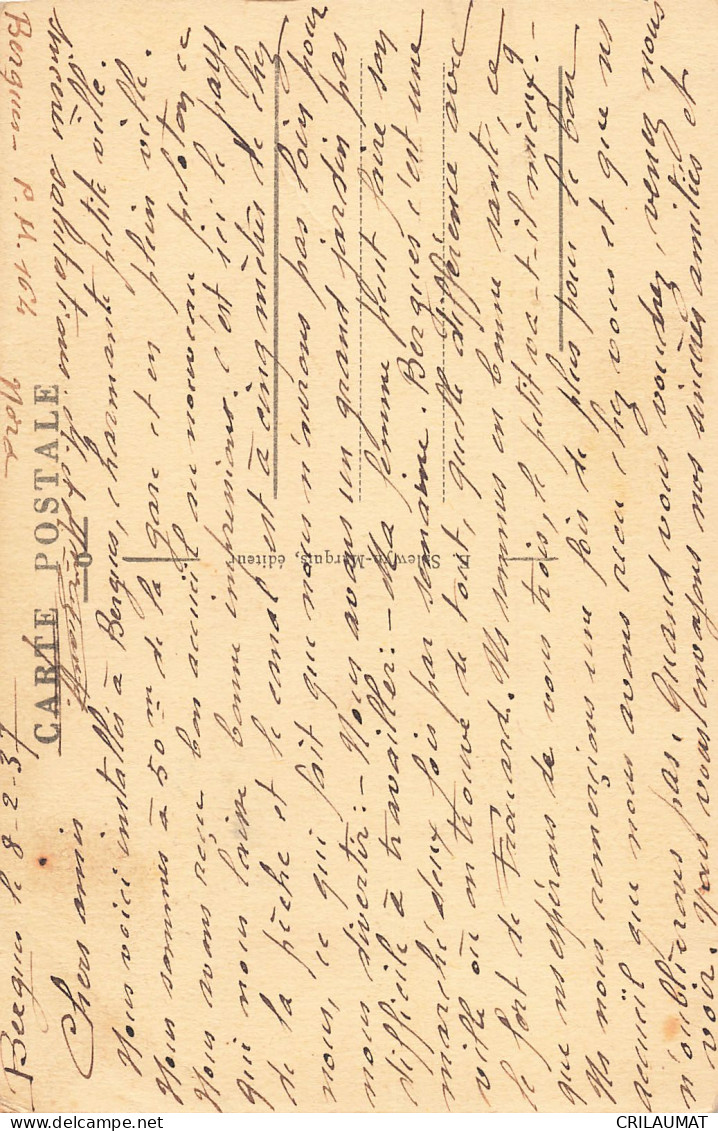 Bergues le 8-2-37
Bergues P.H. 164 Nord
CARTE POSTALE
Chers amis
Nous voici installés à Bergues, charmante petite ville.
Nous sommes à 50m de la gare et en plein ville.
Nous avons reçu bon accueil au nouveau peloton ce
qui nous laisse bonne impression. c'est ici le pays
de la pêche et le canal est à cinq mètres de chez
nous, ce qui fait que nous n'aurons pas loin pour
nous divertir :- Nous avons un grand jardin pas
difficile à travailler :- Ma femme peut faire son
marché deux fois par semaine. Bergues c'est une
ville où on trouve de tout, quelle différence avec
le fort de . Ns sommes en bonne santé, ce
que ns espérons de vous trois, le petit va-t-il mieux ? -
Ns nous remercions une fois de plus pour le bon
accueil que nous avons reçu chez vous et que ns
n'oublierons pas. Quand vous voudrez, venez nous
voir. Nous vous envoyons nos sincères amitiés et
sincères salutations.
Marquis, éditeur
CRILAUMAT